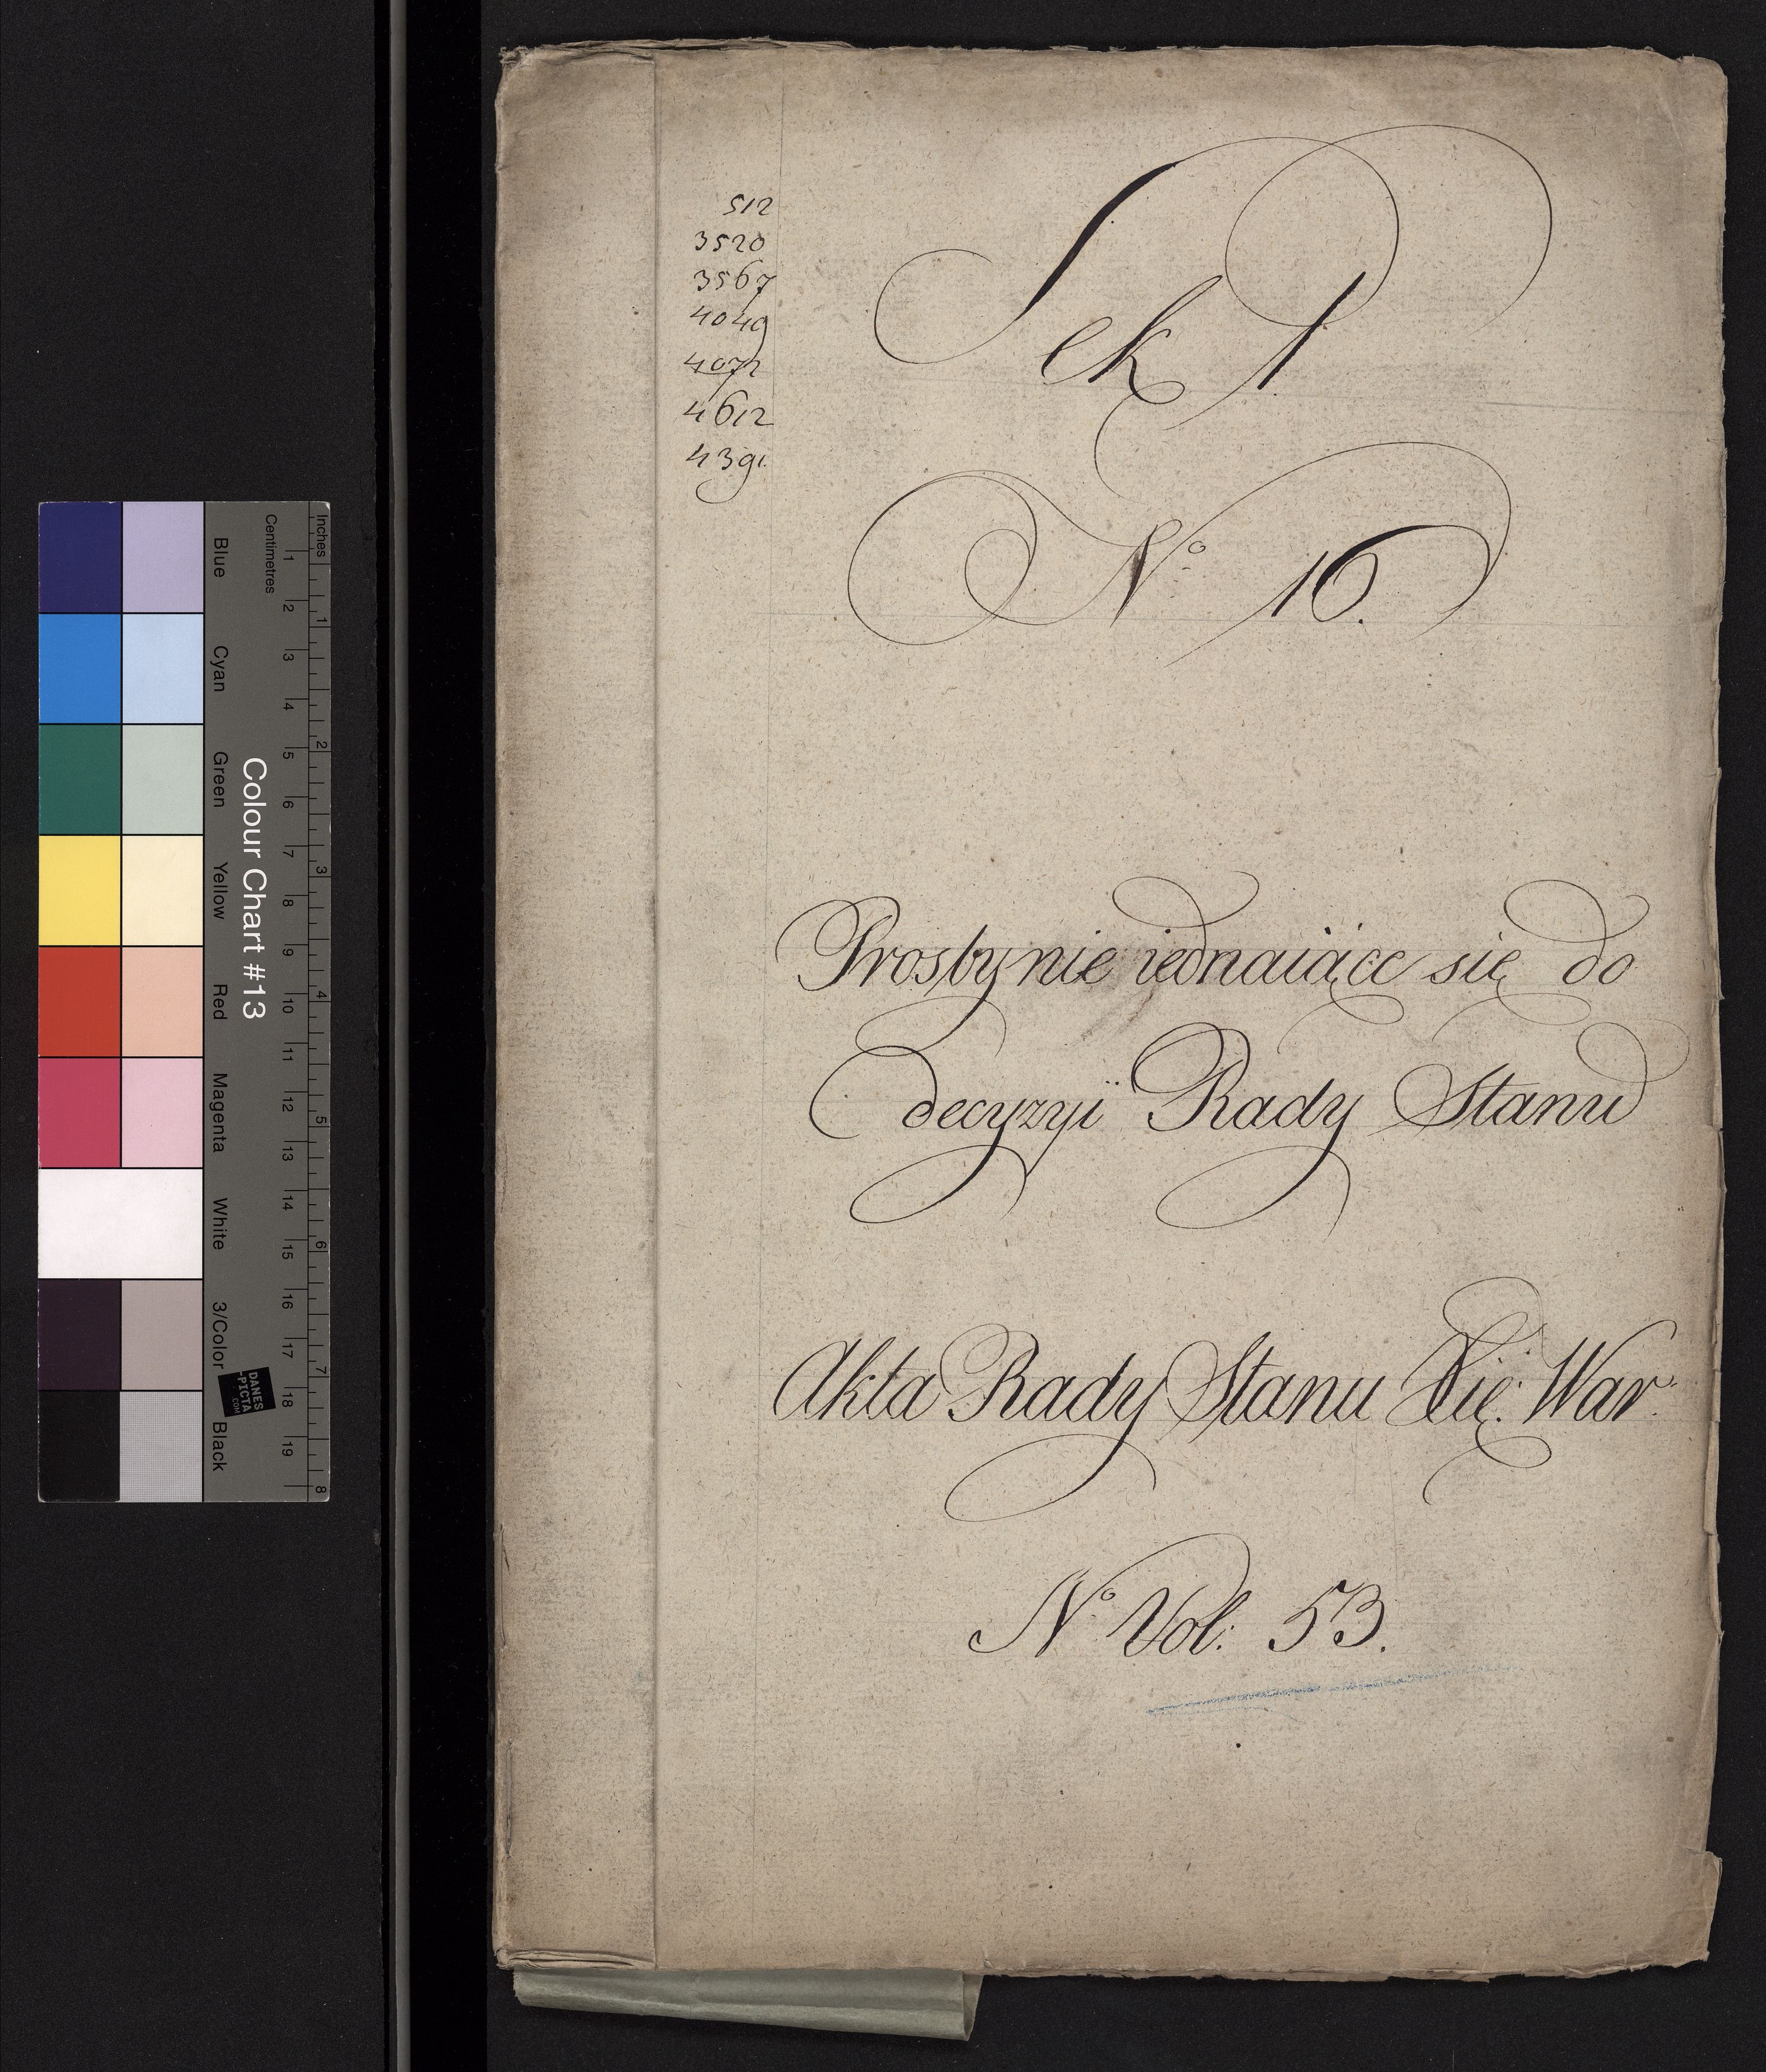 512
3520
3567
4049
4072
4612
4391.
Sek 1
No 16.
Prosby nie iednaiące się do
decyzyi Rady Stanu
Akta Rady Stanu Xię: War:
No Vol: 53.
Inches
Centimetres
1 2 3 4 5 6 7 8 9 10 11 12 13 14 15 16 17 18 19
1 2 3 4 5 6 7 8
Colour Chart #13
Blue Cyan Green Yellow Red Magenta White 3/Color Black
DANES
-PICTA
.COM